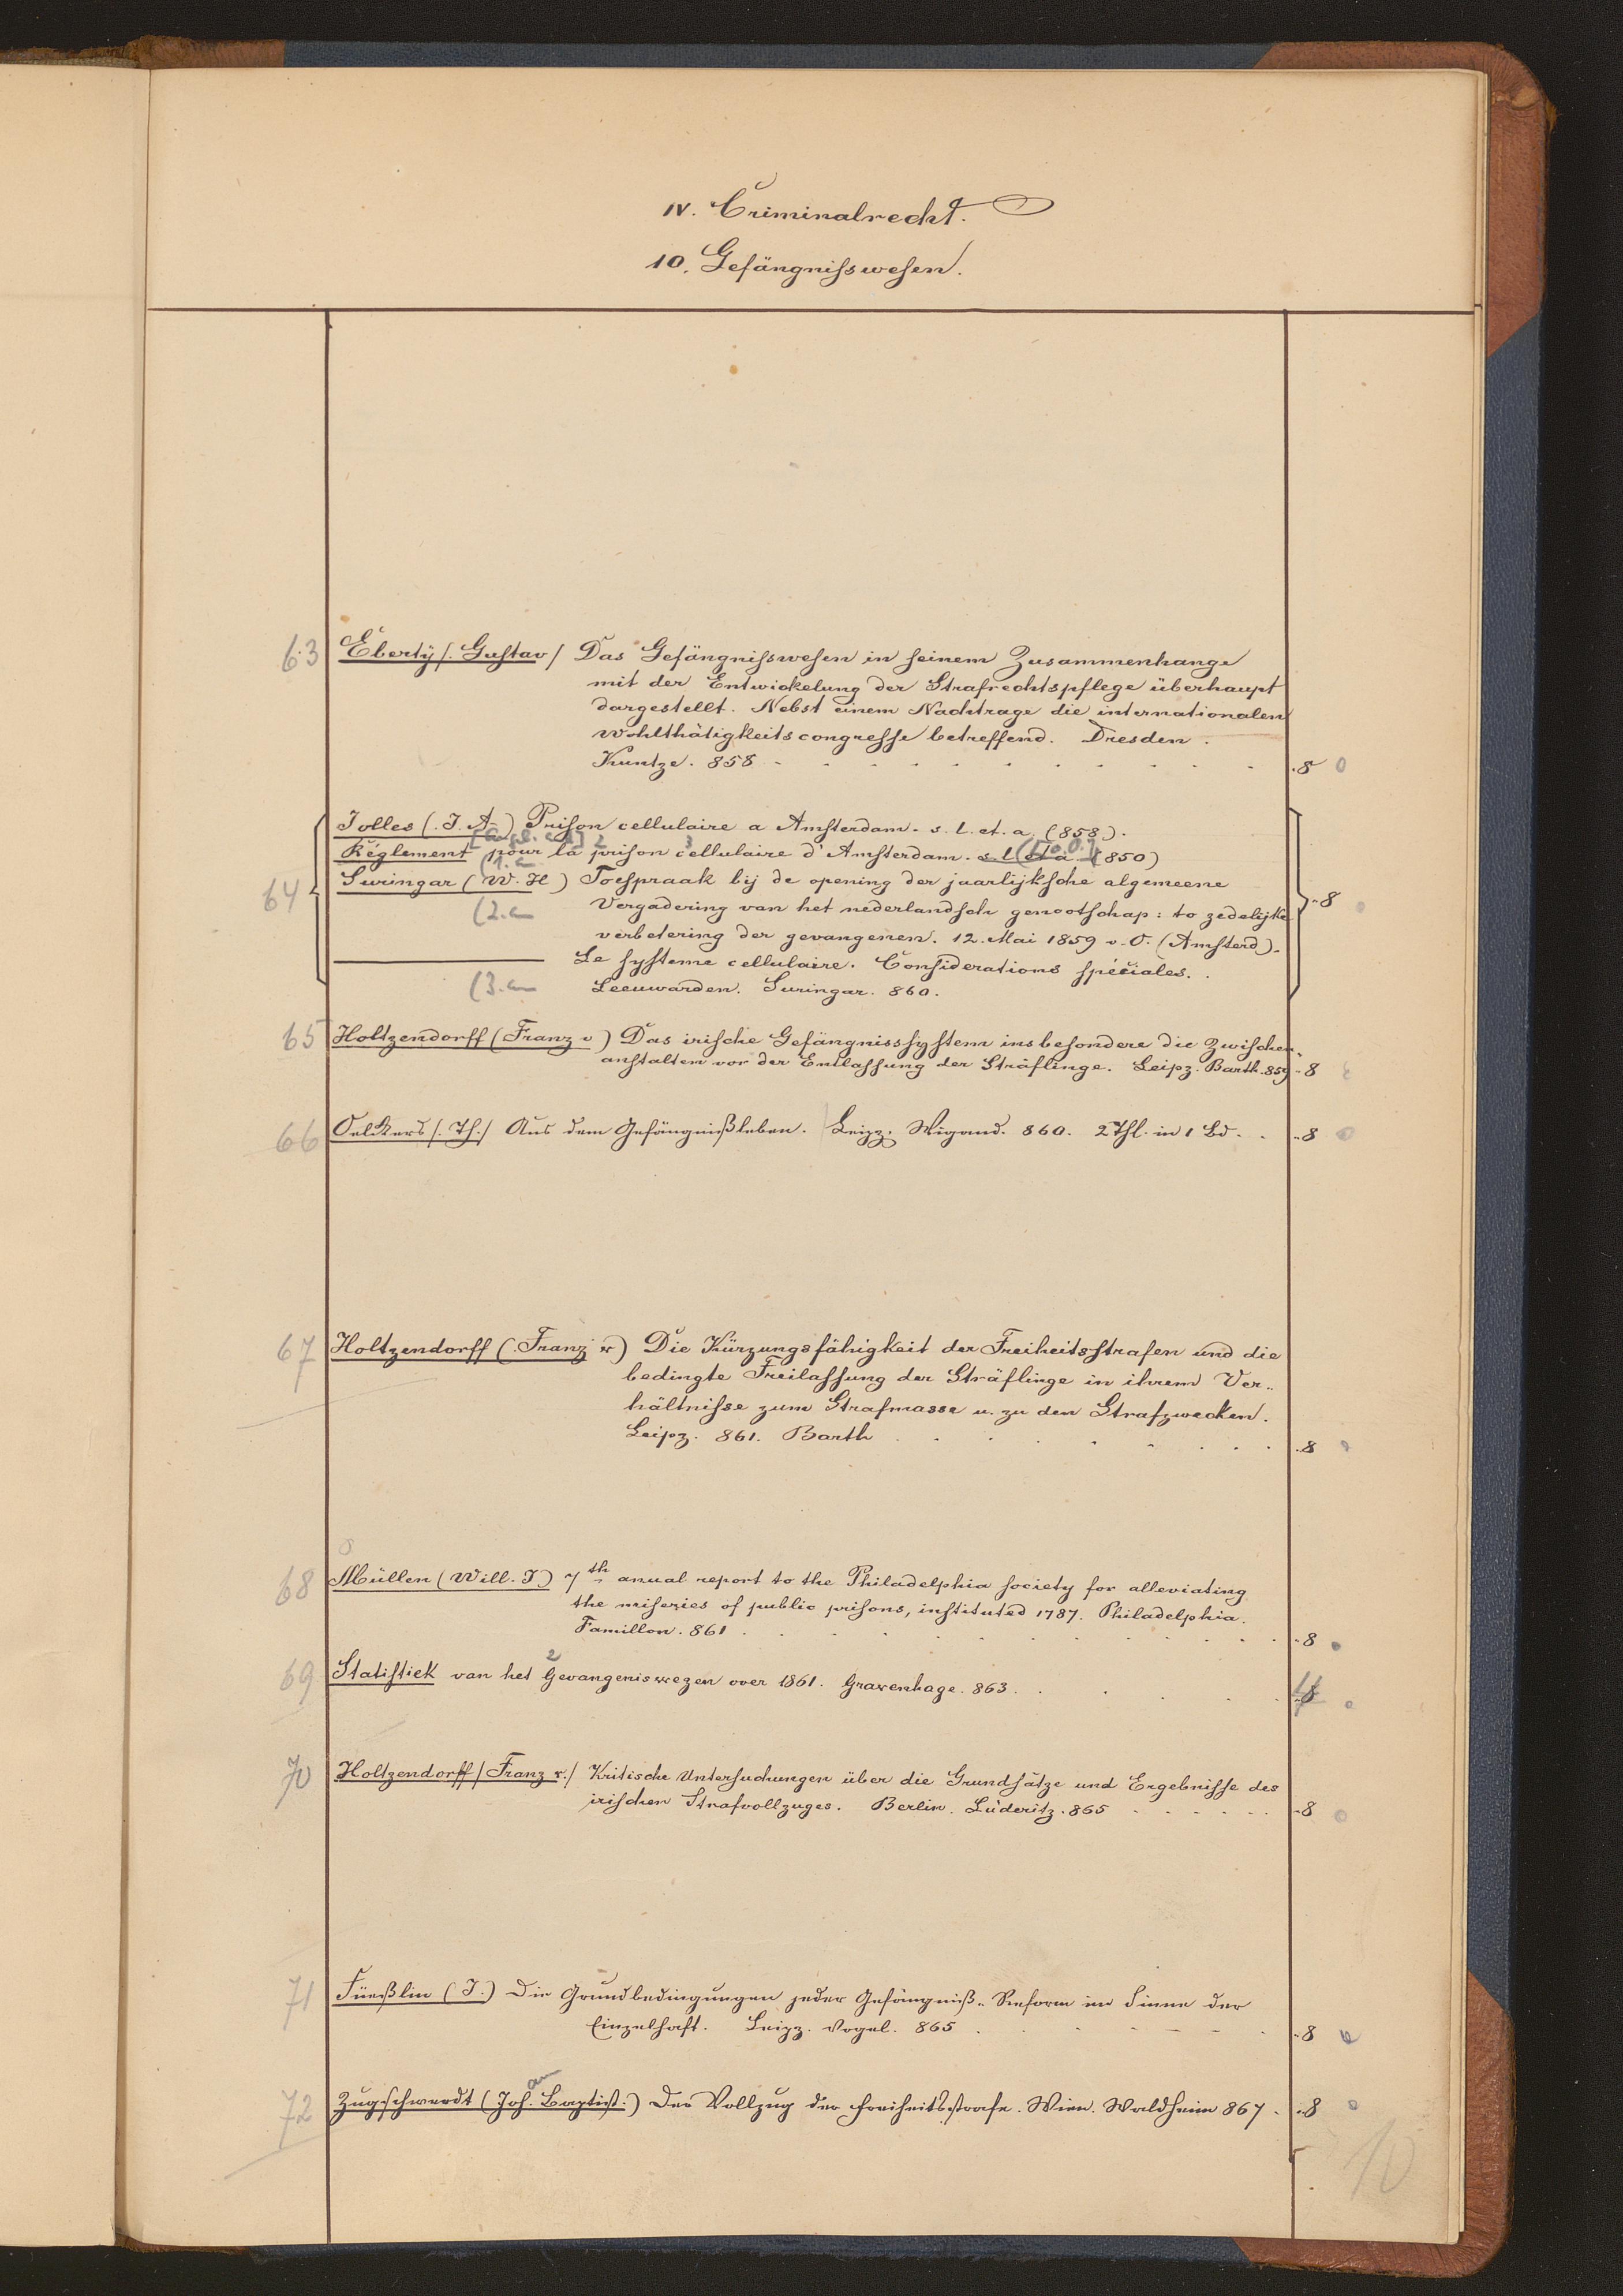 IV. Criminalrecht.
10. Gefängnisswesen.
63 Eberty (. Gustav / Das Gefängnisswesen in seinem Zusammenhange
mit der Entwickelung der Strafrechtspflege überhaupt
dargestellt. Nebst einem Nachtrage die internationalen
Wohlthätigkeitscongresse betreffend. Dresden.
Kuntze. 858 - 8 0
Jolles (. J. A.) Prison cellulaire a Amsterdam. s. l. et. a. (858).
Réglement pour la prison cellulaire d'Amsterdam. s. l. et a. (850)
64 Suringar (W. H) Toespraak bij de opening der jaarlijksche algemeene - 8
Vergadering van het nederlandsch genootschap: to zedelijke
verbetering der gevangenen. 12. Mai 1859 v. O. (Amsterd).
Le systeme cellulaire. Considerations spéciales.
Leeuwarden. Suringar. 860.
65 Holtzendorff (Franz v) Das irische Gefängnisssystem insbesondere die Zwischen-
anstalten vor der Entlassung der Sträflinge. Leipz. Barth. 859 - 8
66 Oelckers (. Th./ Aus dem Gefängnißleben. Leipz. Wigand. 860. 2 Thl. in 1 Bd. - 8 0
67 Holtzendorff (. Franz v) Die Kürzungsfähigkeit der Freiheitsstrafen und die
bedingte Freilassung der Sträflinge in ihrem Ver-
hältnisse zum Strafmasse u. zu den Strafzwecken.
Leipz. 861. Barth - 8
68 Müllen (Will. J) 7th anual report to the Philadelphia society for alleviating
the miseries of public prisons, instituted 1787. Philadelphia.
Famillon. 861 - 8
2
69 Statistiek van het Gevangeniswezen over 1861. Gravenhage. 863. 4
70 Holtzendorff / Franz v./ Kritische Untersuchungen über die Grundsätze und Ergebnisse des
irischen Strafvollzuges. Berlin. Lüderitz. 865 - 8 0
71 Füeßlin (J.) Die Grundbedingungen jeder Gefängniß-Reform im Sinne der
Einzelhaft. Leipz. Vogel. 865 - 8
72 Zugschwerdt (Joh. Baptist.) Der Vollzug der Freiheitsstrafe. Wien. Waldheim 867. - 8
10